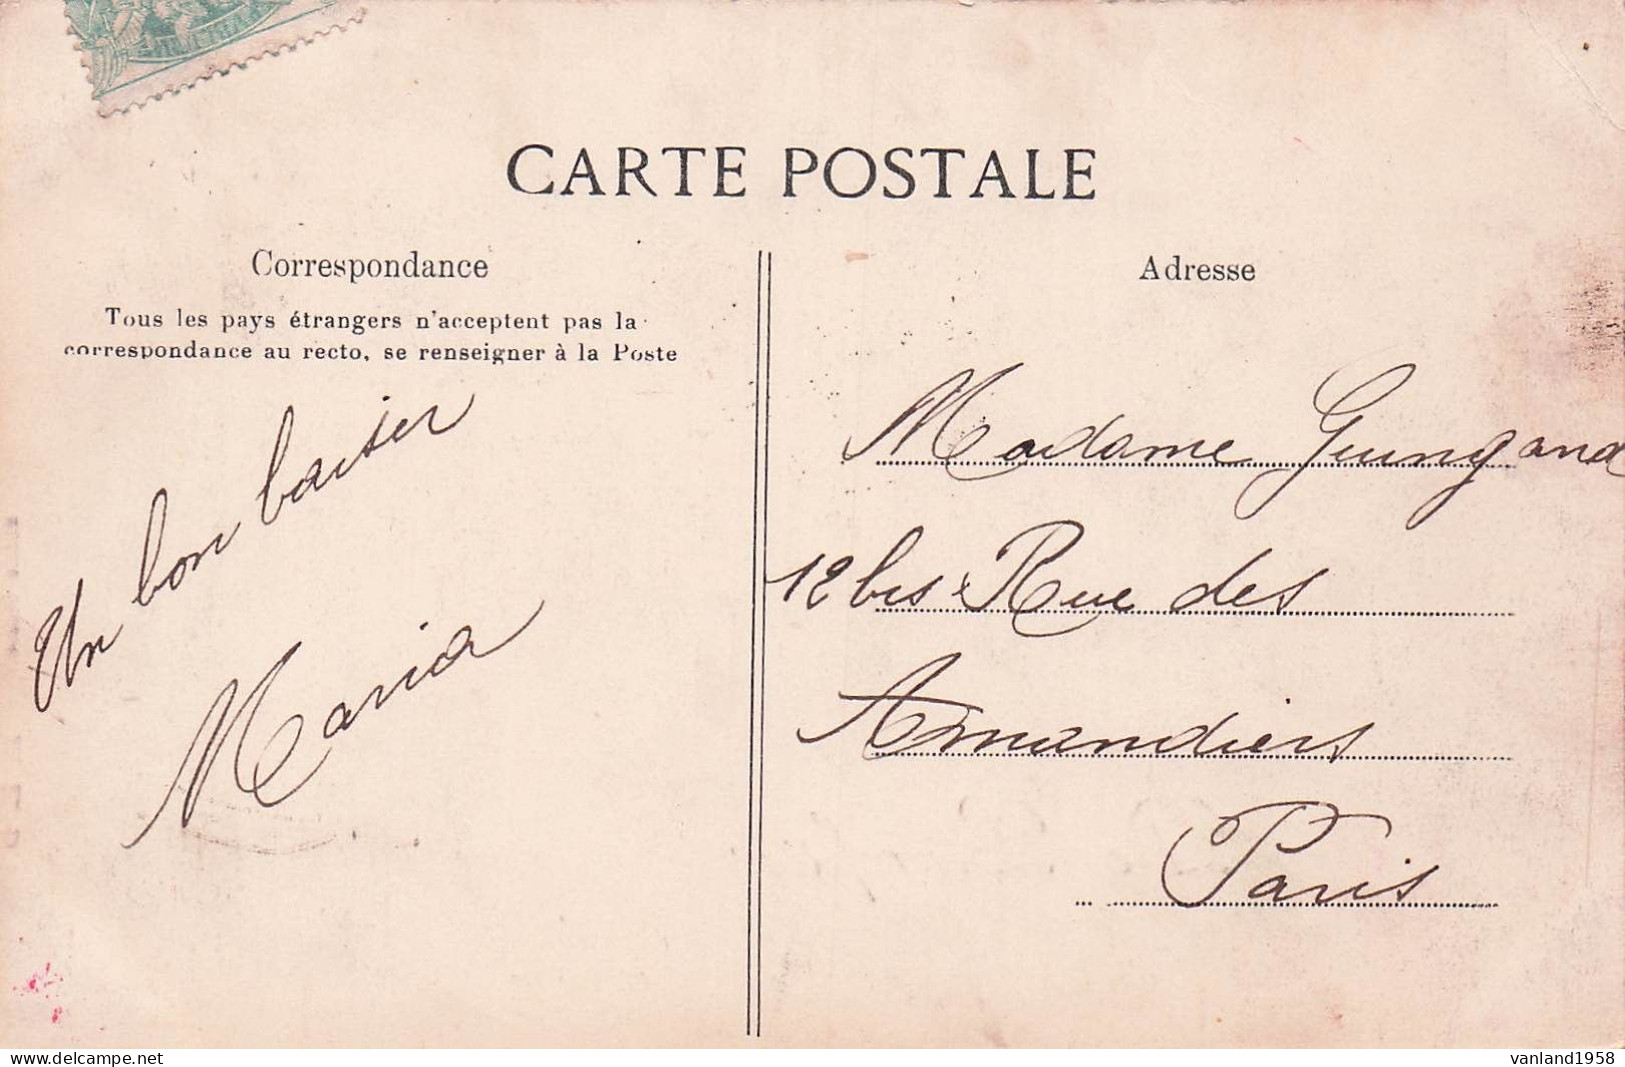 CARTE POSTALE
Correspondance
Tous les pays étrangers n'acceptent pas la
correspondance au recto, se renseigner à la Poste
Un bon baiser
Maria
Adresse
Madame Guingand
12 bis Rue des
Amandiers
Paris
delcampe.net
vanland1958